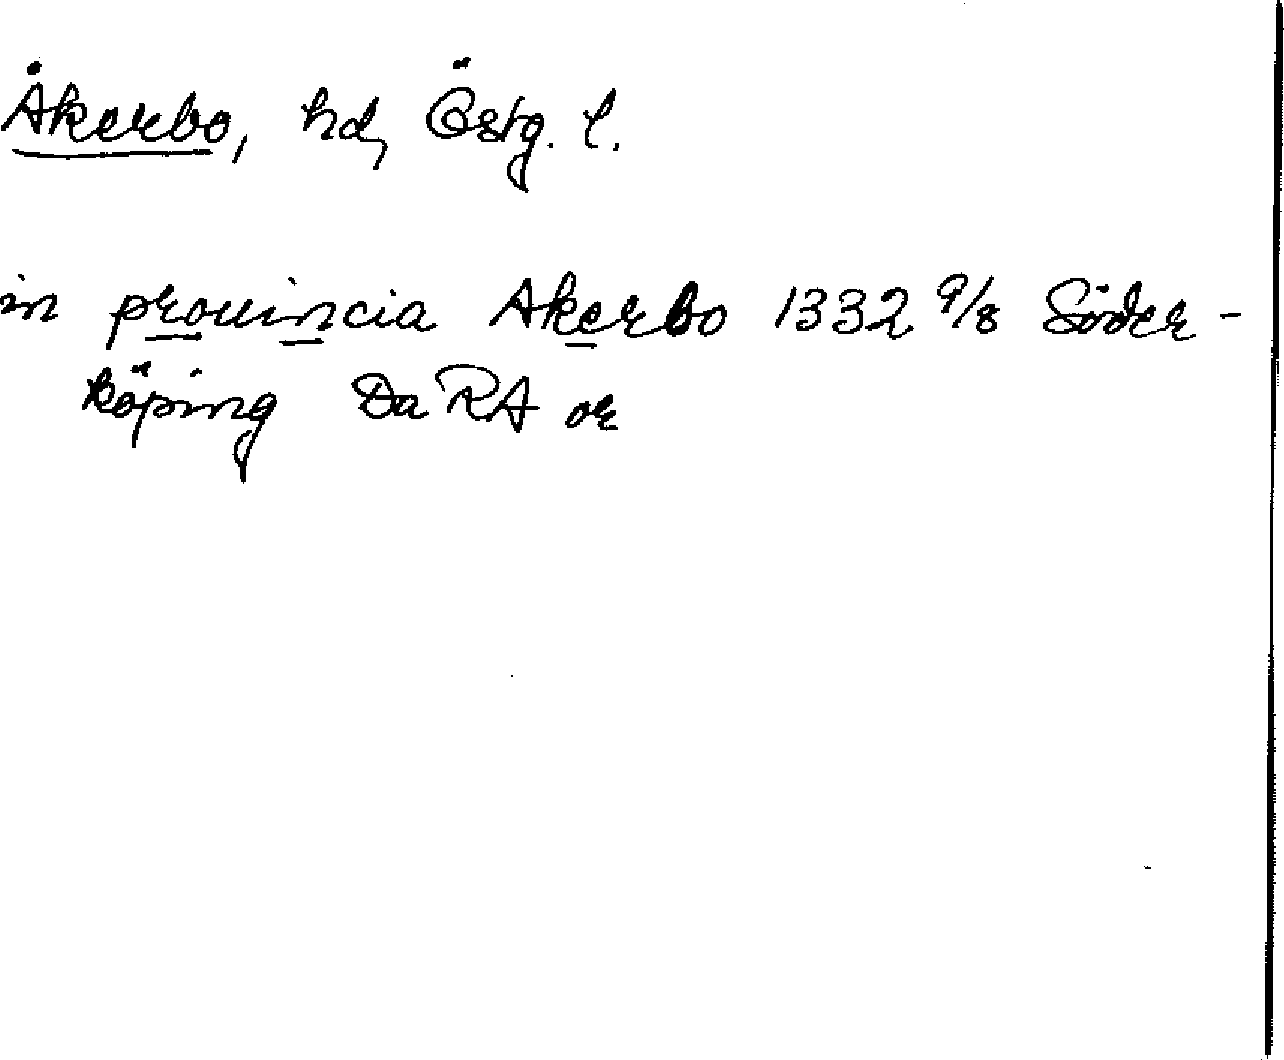 Åkerbo, hd, Östg. l.
in prouincia Akerbo 1332 9/8 Söder-
köping DaRA or